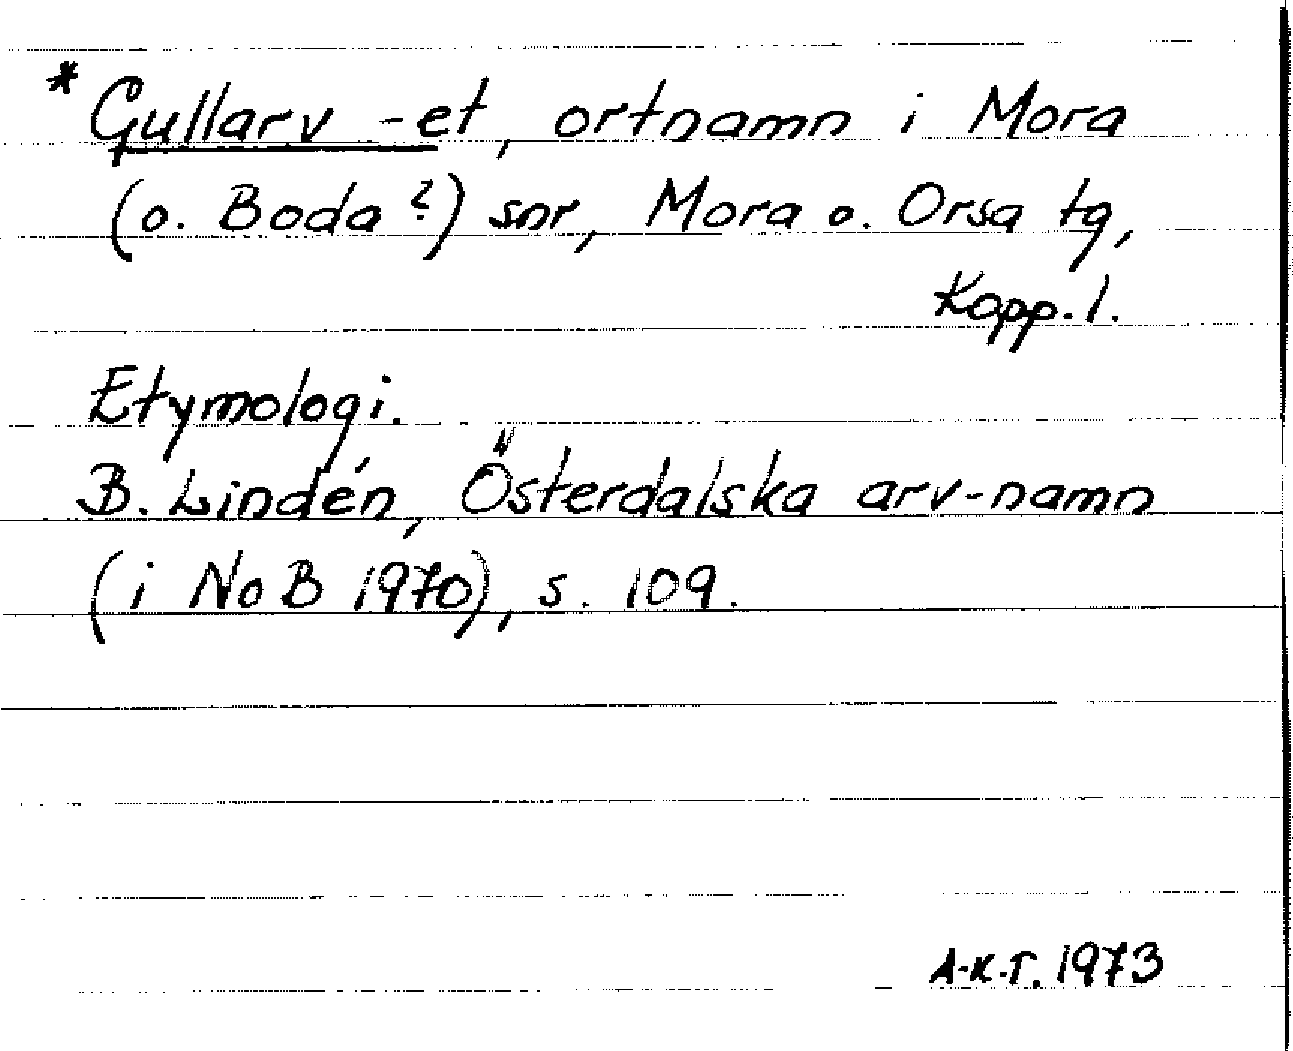 * Gullarv -et, ortnamn i Mora
(o. Boda ?) snr, Mora o. Orsa tg,
Kopp. l.
Etymologi.
B. Lindén, Österdalska arv-namn
(i NoB 1970), s. 109.
A-K.T. 1973